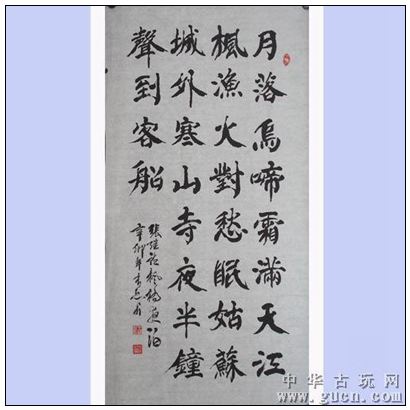 月落烏啼霜滿天江
楓漁火對愁眠姑蘇
城外寒山寺夜半鐘
聲到客船
張繼詩楓橋夜泊
辛卯年
中华古玩网
www.gucn.com